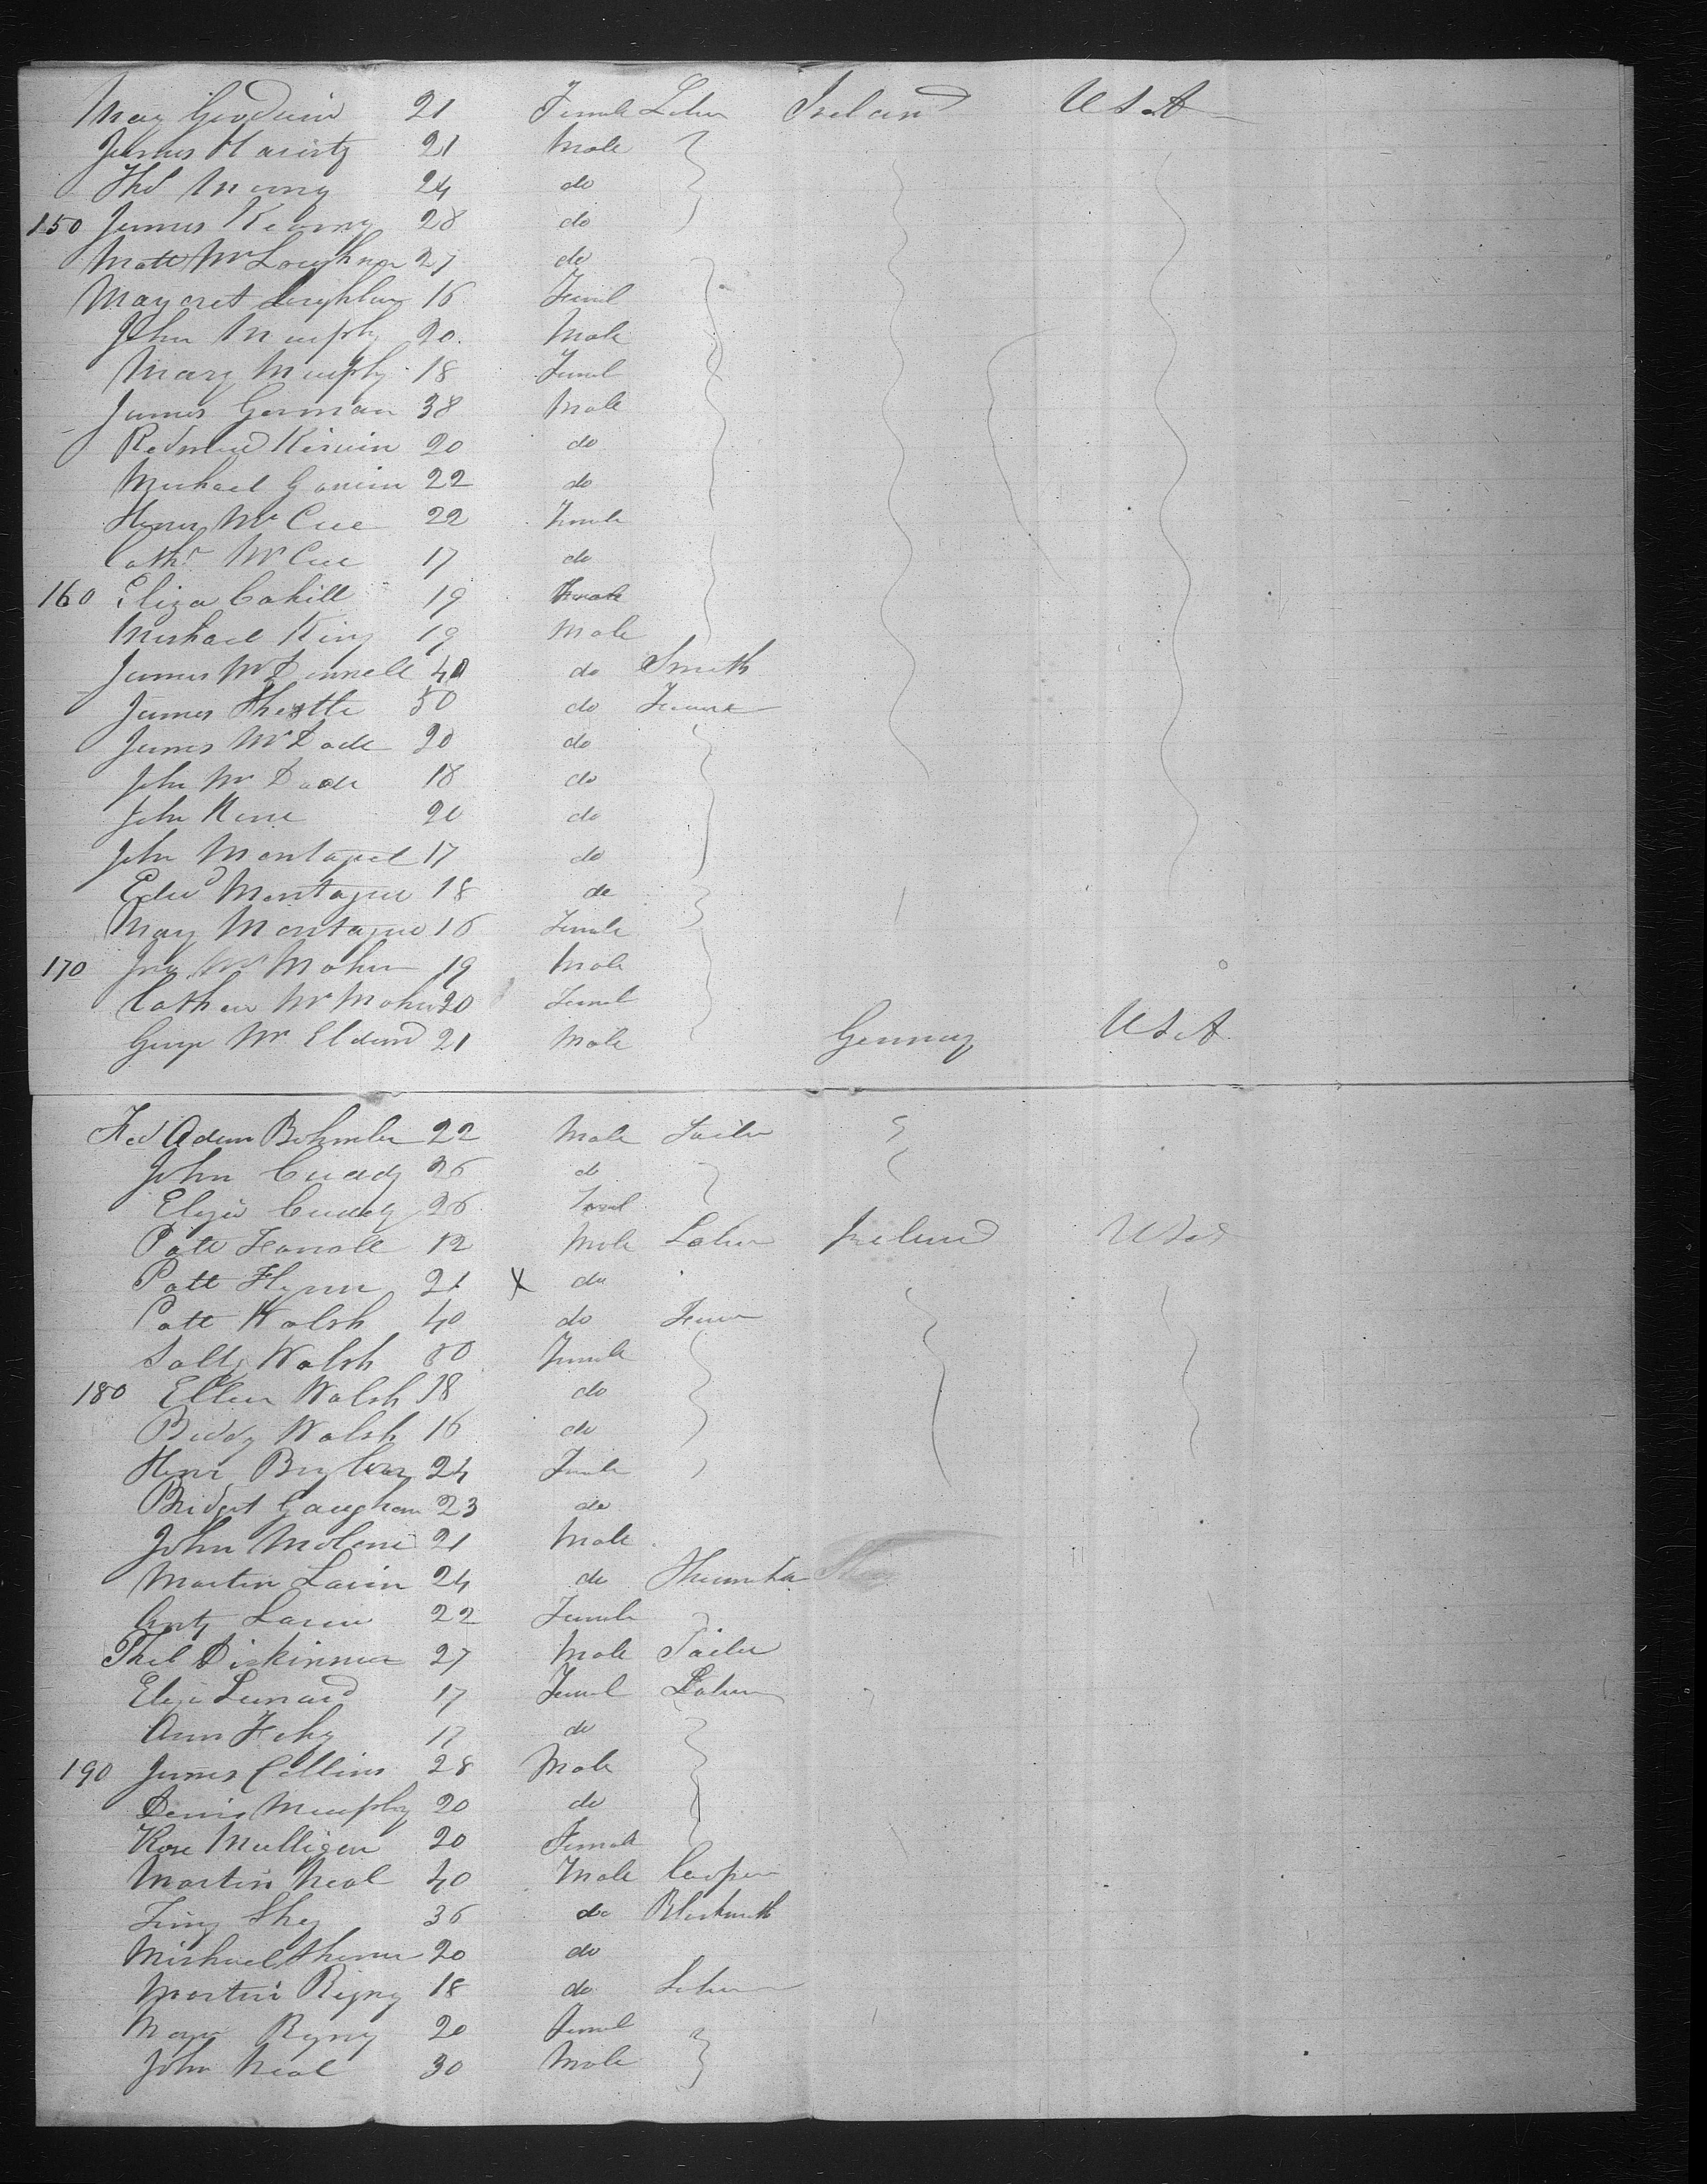 Mary Goodwin 21 Female Labor Ireland USA
James 21 Male
Thos 24 do
150 James Kearny 28 do
Matt McLoughnn 27 do
Margaret Loughlin 16 Femal
John Murphy 20 Male
Mary Murphy 18 Femal
James Gorman 38 Male
Redmond Kirwin 20 do
Michael 22 do
Honor McCue 22 Female
Cathr McCue 17 do
160 Eliza Cahill 19 Female
Michael King 19 Male
James McDonnell 40 do Smith
James 50 do
James McDade 20 do
John McDade 18 do
John Kene 20 do
John Montague 17 do
Edwd Montague 18 do
Mary Montague 16 Female
170 McMahon 19 Male
McMahon 20 Femal
George 21 Male Germany USA
Adam 22 Male Tailor
John Cuddy 26 do
Eliza Cuddy 26 Femal
Patt 12 Male Labor Ireland USA
Patt Flynn 21 X do
Patt Walsh 40 do
Sally Walsh 50 Female
180 Ellen Walsh 18 do
Biddy Walsh 16 do
24 Female
Bridget Gaughan 23 do
John 21 Male
Martin Lavin 24 do
Lavin 22 Female
Phil 27 Male Tailor
Eliza Lenard 17 Femal Labor
Ann Fehy 17 do
190 James Collins 28 Male
Denis Murphy 20 do
Rose Mulligan 20 Female
Martin Neal 40 Male Cooper
36 do Blacksmith
Michael 20 do
Martin Rigny 18 do Labor
Rigny 20 Femal
John Neal 30 Male